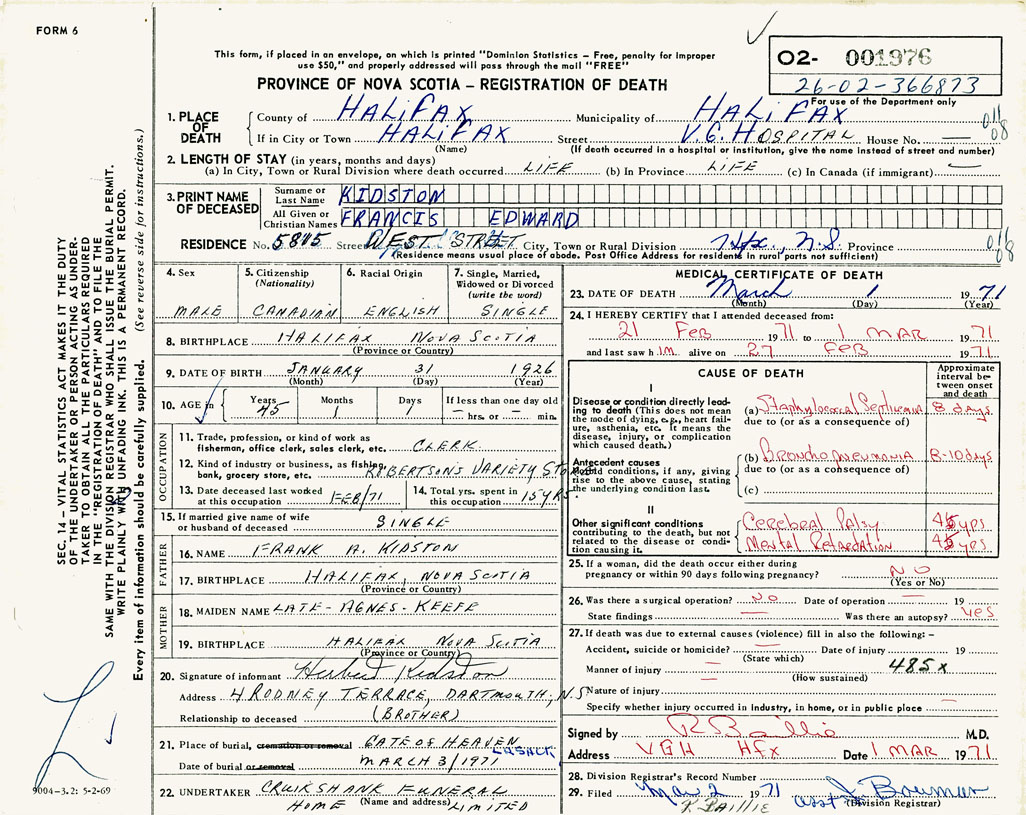 FORM 6
This form, if placed in an envelope, on which is printed "Dominion Statistics – Free, penalty for improper
use $50," and properly addressed will pass through the mail "FREE"
PROVINCE OF NOVA SCOTIA – REGISTRATION OF DEATH
02- 001976
26-02-366873
For use of the Department only
1. PLACE OF DEATH
County of HALIFAX Municipality of HALIFAX
If in City or Town HALIFAX Street V.G. HOSPITAL House No. —
(Name) (If death occurred in a hospital or institution, give the name instead of street and number)
2. LENGTH OF STAY (in years, months and days)
(a) In City, Town or Rural Division where death occurred LIFE (b) In Province LIFE (c) In Canada (if immigrant) —
3. PRINT NAME OF DECEASED
Surname or Last Name KIDSTON
All Given or Christian Names FRANCIS EDWARD
RESIDENCE No. 5815 Street WEST STREET City, Town or Rural Division Hfx, N.S. Province
(Residence means usual place of abode. Post Office Address for residents in rural parts not sufficient)
4. Sex
MALE
5. Citizenship (Nationality)
CANADIAN
6. Racial Origin
ENGLISH
7. Single, Married, Widowed or Divorced (write the word)
SINGLE
8. BIRTHPLACE HALIFAX NOVA SCOTIA
(Province or Country)
9. DATE OF BIRTH JANUARY 31 1926
(Month) (Day) (Year)
10. AGE in Years 45 Months 1 Days 1 If less than one day old — hrs. or — min.
OCCUPATION
11. Trade, profession, or kind of work as
fisherman, office clerk, sales clerk, etc. CLERK.
12. Kind of industry or business, as fishing,
bank, grocery store, etc. ROBERTSONS VARIETY STORE
13. Date deceased last worked
at this occupation FEB/71
14. Total yrs. spent in
this occupation 15 YRS.
15. If married give name of wife
or husband of deceased SINGLE
FATHER
16. NAME FRANK A. KIDSTON
17. BIRTHPLACE HALIFAX, NOVA SCOTIA
(Province or Country)
MOTHER
18. MAIDEN NAME LATE - AGNES - KEEFE
19. BIRTHPLACE HALIFAX NOVA SCOTIA
(Province or Country)
20. Signature of informant Herbert Kidston
Address 4 RODNEY TERRACE, DARTMOUTH, N.S
Relationship to deceased (BROTHER)
21. Place of burial, cremation or removal GATE OF HEAVEN
Date of burial or removal MARCH 3/1971
22. UNDERTAKER CRUIKSHANK FUNERAL
HOME (Name and address) LIMITED
MEDICAL CERTIFICATE OF DEATH
23. DATE OF DEATH March 1 1971
(Month) (Day) (Year)
24. I HEREBY CERTIFY that I attended deceased from:
21 FEB 1971 to 1 MAR 1971
and last saw him alive on 27 FEB 1971
CAUSE OF DEATH
Approximate interval between onset and death
I
Disease or condition directly leading to death (This does not
mean the mode of dying, e.g., heart failure, asthenia, etc. It means the
disease, injury, or complication which caused death.)
(a) Staphylococcal Septicemia 8 days.
due to (or as a consequence of)
Antecedent causes
Morbid conditions, if any, giving
rise to the above cause, stating
the underlying condition last.
(b) Bronchopneumonia 8-10 days
due to (or as a consequence of)
(c)
II
Other significant conditions
contributing to the death, but not
related to the disease or condition causing it.
Cerebral Palsy 45 yrs
Mental Retardation 45 yrs.
25. If a woman, did the death occur either during
pregnancy or within 90 days following pregnancy? NO
(Yes or No)
26. Was there a surgical operation? NO Date of operation — 19
State findings — Was there an autopsy? yes
27. If death was due to external causes (violence) fill in also the following: –
Accident, suicide or homicide? — Date of injury 19
(State which)
Manner of injury — 485x
(How sustained)
Nature of injury
Specify whether injury occurred in industry, in home, or in public place —
Signed by R Baillie M.D.
Address VGH HFX Date 1 MAR 1971
28. Division Registrar's Record Number
29. Filed Mar 2 1971
R. BAILLIE
(Division Registrar)
SEC. 14 – VITAL STATISTICS ACT MAKES IT THE DUTY
OF THE UNDERTAKER OR PERSON ACTING AS UNDER-
TAKER TO OBTAIN ALL THE PARTICULARS REQUIRED
IN THE "REGISTRATION OF DEATH" AND TO FILE THE
SAME WITH THE DIVISION REGISTRAR WHO SHALL ISSUE THE BURIAL PERMIT.
WRITE PLAINLY WITH UNFADING INK. THIS IS A PERMANENT RECORD.
Every item of information should be carefully supplied. (See reverse side for instructions.)
9004-3.2: 5-2-69